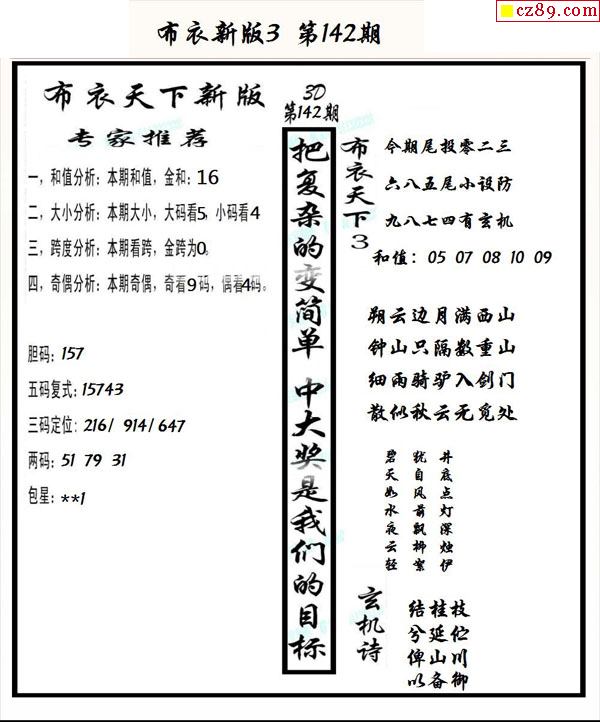 cz89.com
布衣新版3 第142期
布衣天下新版
专家推荐
一，和值分析：本期和值，金和：16
二，大小分析：本期大小，大码看5，小码看4
三，跨度分析：本期看跨，金跨为0。
四，奇偶分析：本期奇偶，奇看9码，偶看4码。
胆码：157
五码复式：15743
三码定位：216/ 914/ 647
两码：51 79 31
包星：**1
3D
第142期
把复杂的变简单 中大奖是我们的目标
布衣天下3
今期尾投零二三
六八五尾小设防
九八七四有玄机
和值：05 07 08 10 09
朔云边月满西山
钟山只隔数重山
细雨骑驴入剑门
散似秋云无觅处
碧天如水夜云轻
犹自风前飘柳絮
井底点灯深烛伊
玄机诗
结桂枝
兮延伫
俾山川
以备御